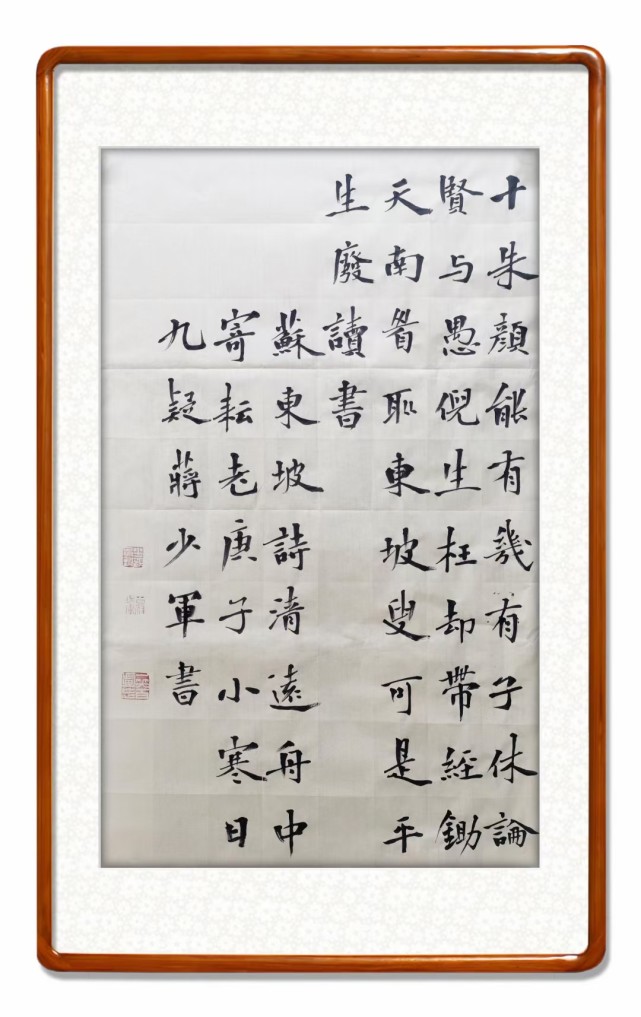 十朱顔能有幾有子休論
賢与愚倪生枉却帶經鋤
天南看取東坡叟可是平
生廢讀書
蘇東坡詩清遠舟中
寄耘老庚子小寒日
九疑蔣少軍書